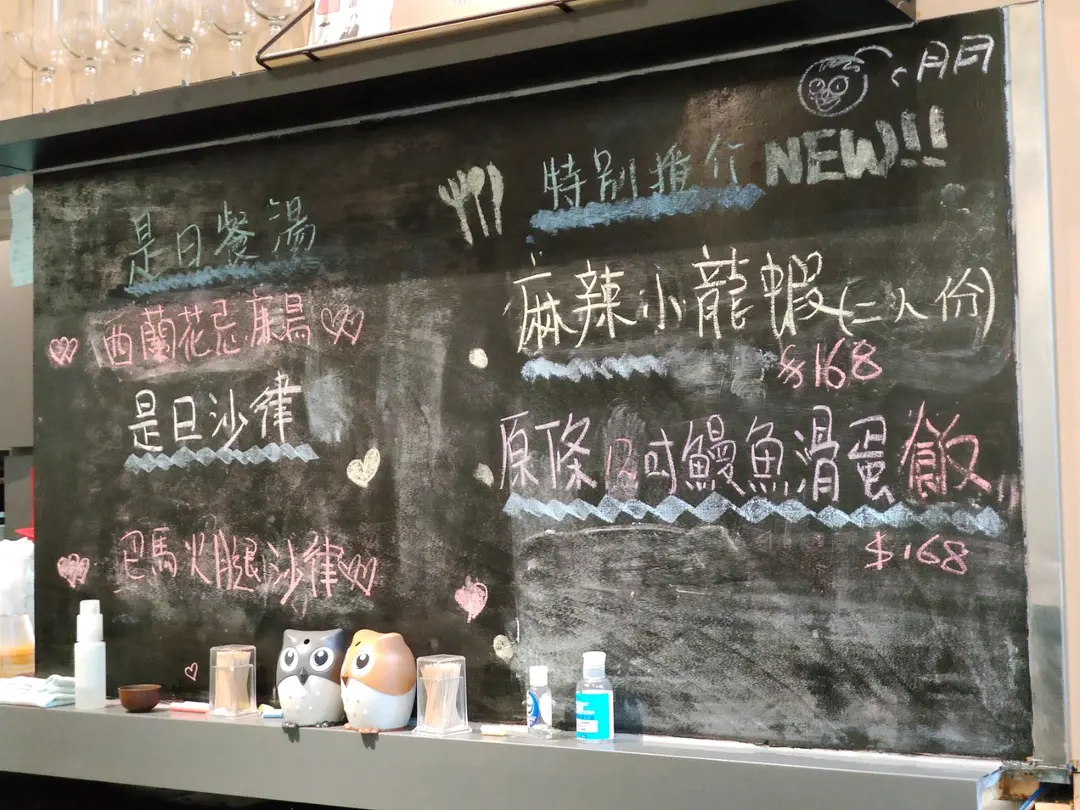 是日餐湯
西蘭花忌廉湯
是日沙律
巴馬火腿沙律
月月
特別推介 NEW!!
麻辣小龍蝦(二人份)
$168
原條12吋鰻魚滑蛋飯
$168